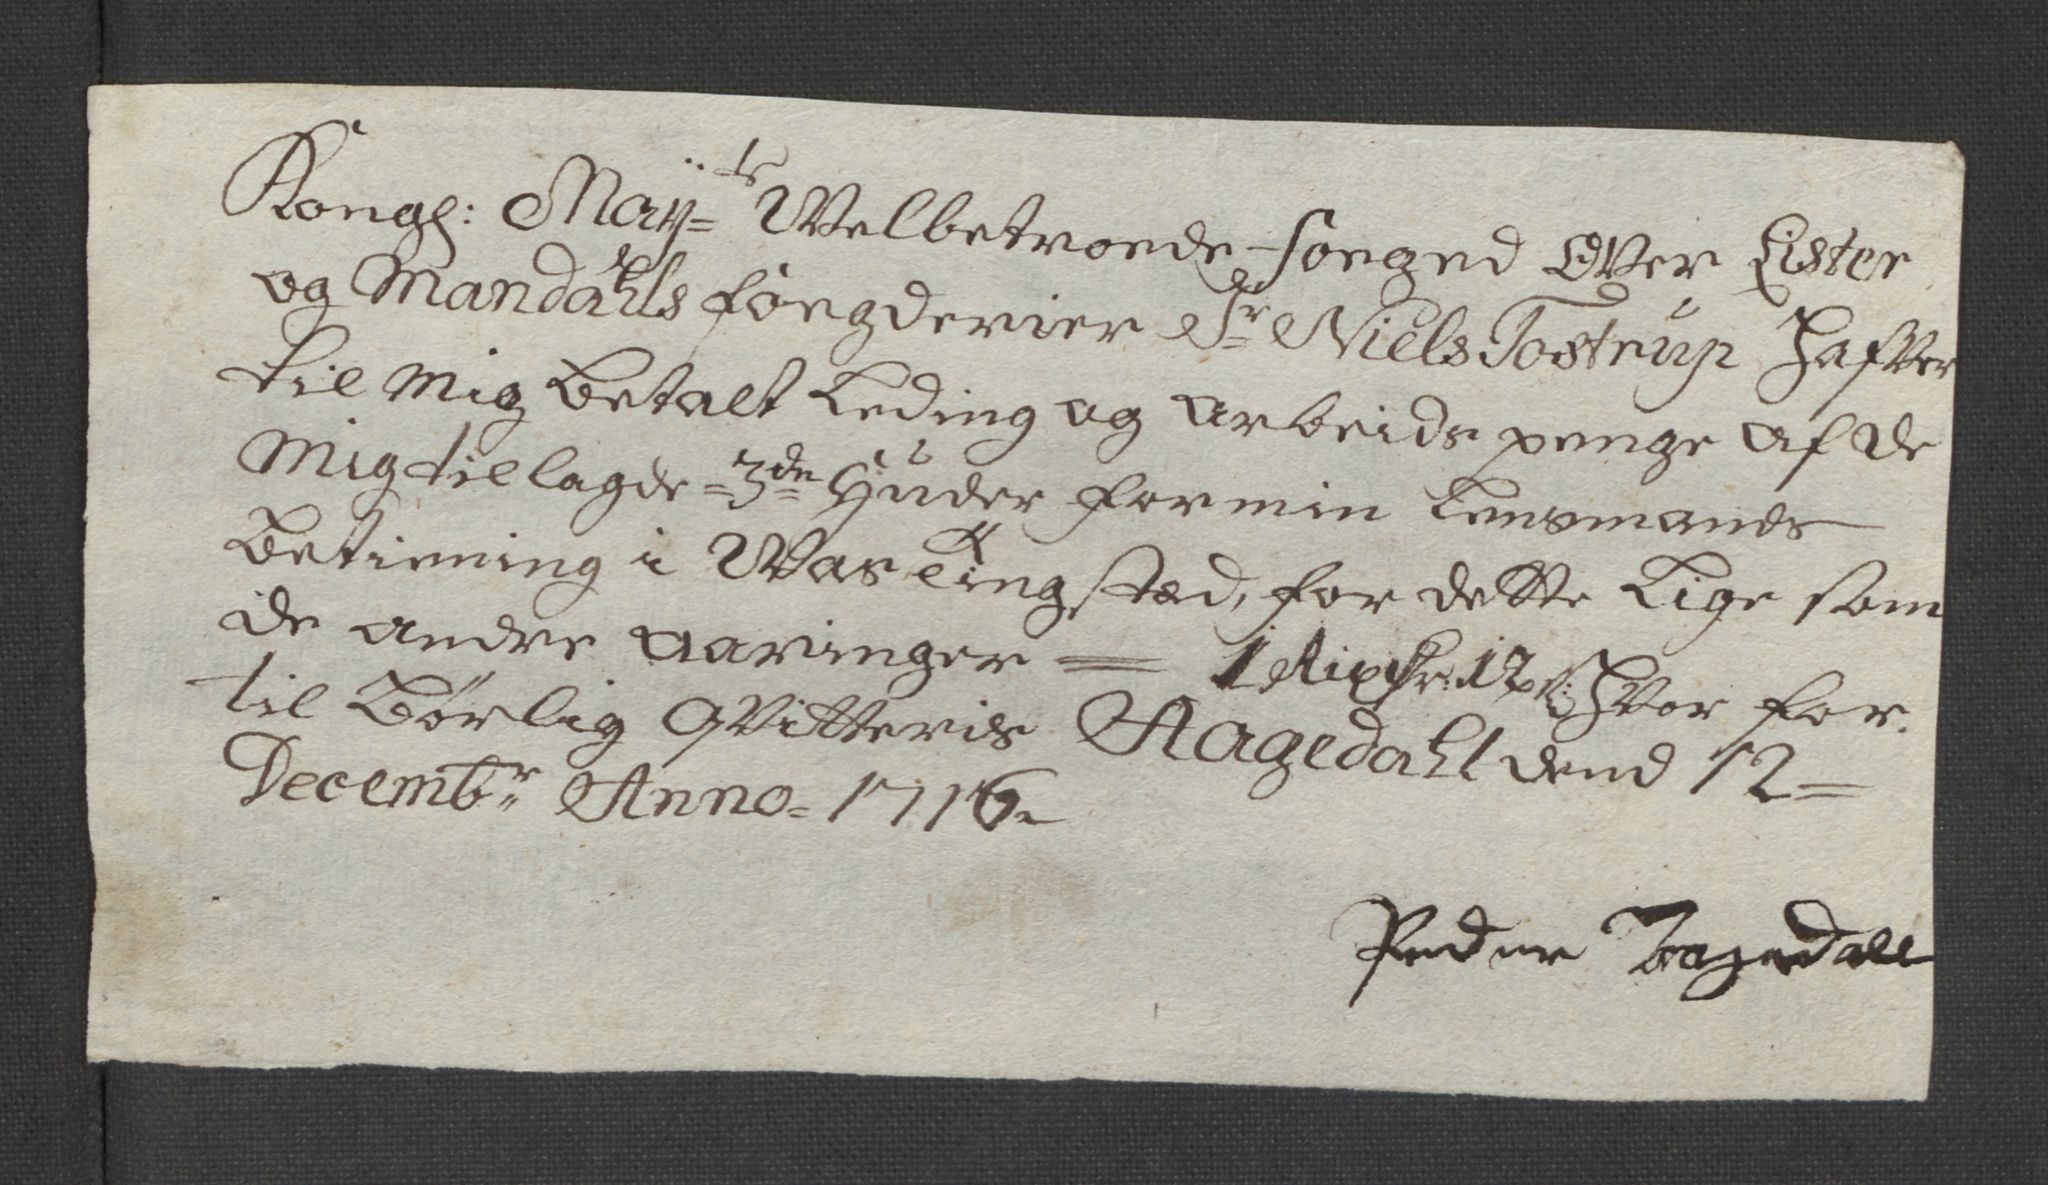 Kongl: Maÿ=ts Welbetroede foeged Ofver Lister
og Mandahls fougderier Sr Niels Tostrup Hafver
til Mig Betalt Leding og arbeids penge af de
Mig tillagde =3de= Huder for min Lensmands
Betiening i Waas Tingsted, for dette Lige som
de andre aaringer = 1 Rixdlr: 12 s: Hvor for.
til Børlig Qvittering Aagedahl dend 12=
Decembr Anno= 1716
Peder Aagedall